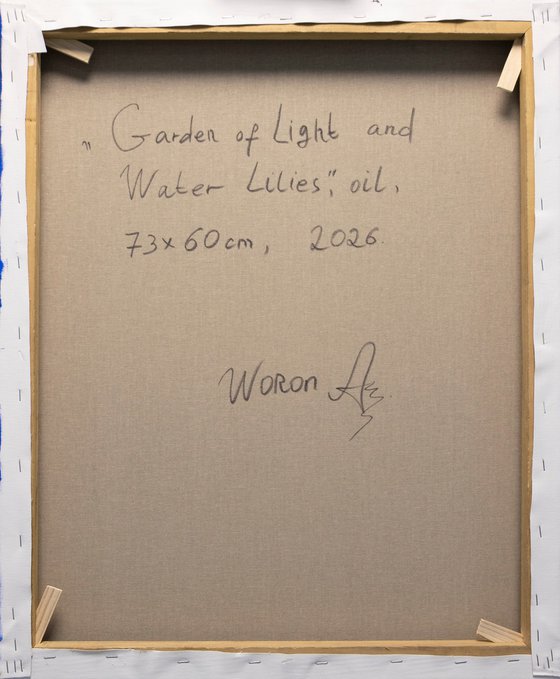 „Garden of Light and
Water Lilies", oil,
73x60cm, 2026.
Woron A